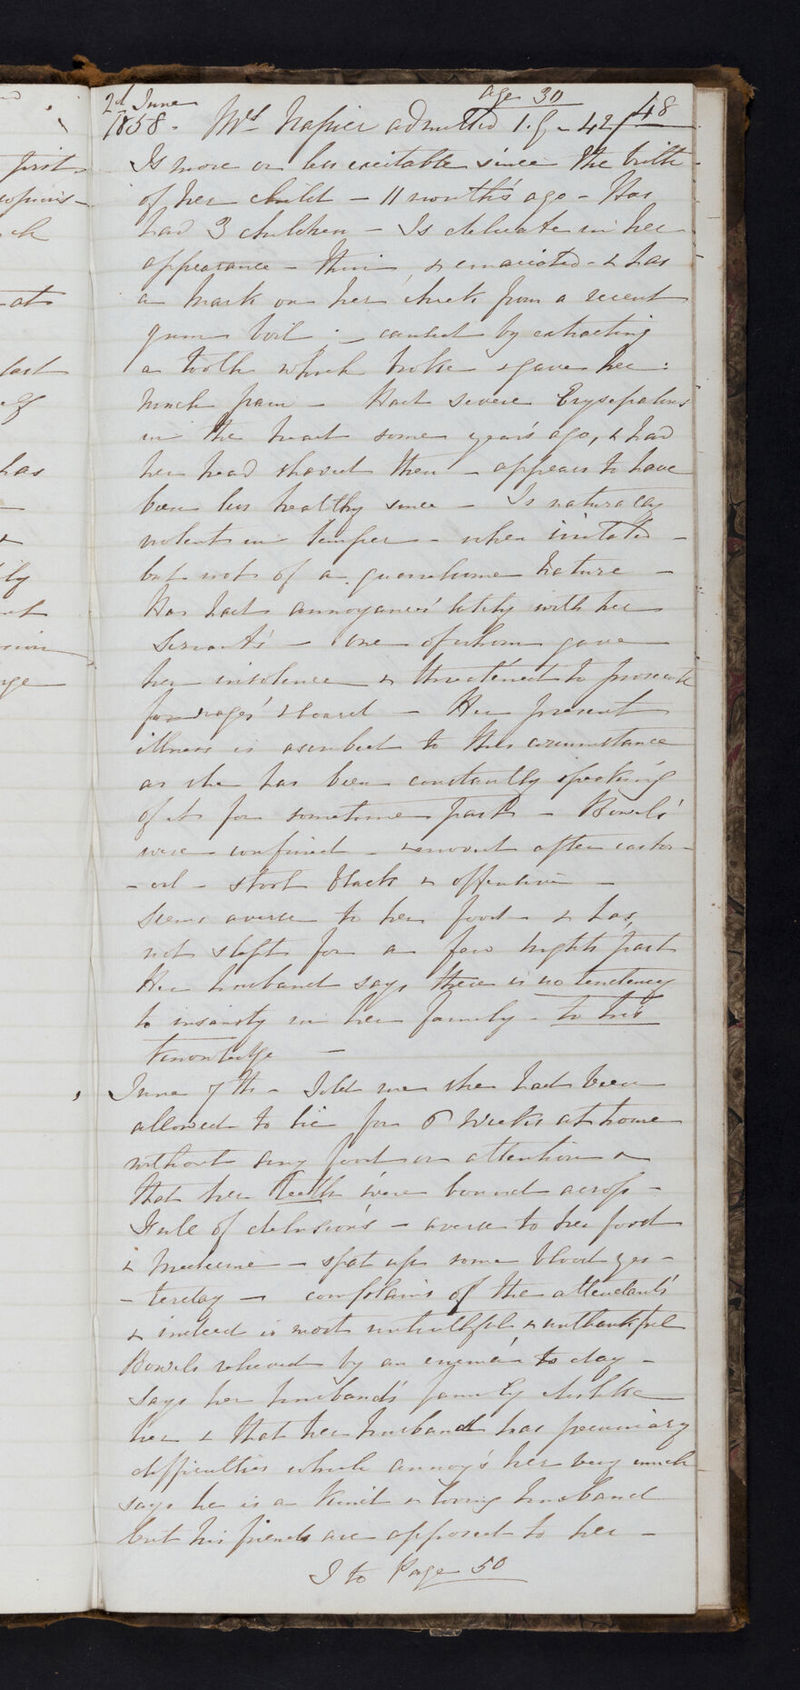 first
ch
at
last
of
has
&
ly
age
2d June age 30 48
1858. Mrs Napier admitted 1.f - 42/
Is more or less excitable since the birth
of her child - 11 months ago - Has
had 3 children - Is delicate in her
appearance - thin & emaciated - & has
a mark on her cheek from a recent
gum boil - caused by extracting
a tooth which broke & gave her
much pain - Had severe Erysipelas
in the head some years ago, & had
her head shaved then - appears to have
been less healthy since - Is naturally
violent in temper - when irritated -
but not of a quarrelsome nature -
Has had annoyances lately with her
Servants - one of whom gave
her insolence & threatened to prosecute
for wages & board - Her present
illness is ascribed to this circumstance
as she has been constantly speaking
of it for sometime past - Bowels
were confined - & moved after castor
- oil - stool black & offensive -
Seems averse to her food & has
not slept for a few nights past
Her husband says there is no tendency
to insanity in her family - to his
knowledge -
June 7th - Told me she had been
allowed to lie for 6 weeks at home
without any food or attention &
that her teeth were bound across -
Full of delusions - averse to her food
& medicine - spat up some blood yes-
- terday - complains of the attendants
& indeed is most untruthful & unthankful
Bowels relieved by an enema to day -
Says her husband's family dislike
her & that her husband has pecuniary
difficulties which annoys her very much
says he is a kind & loving husband
but his friends are opposed to her -
to Page 50